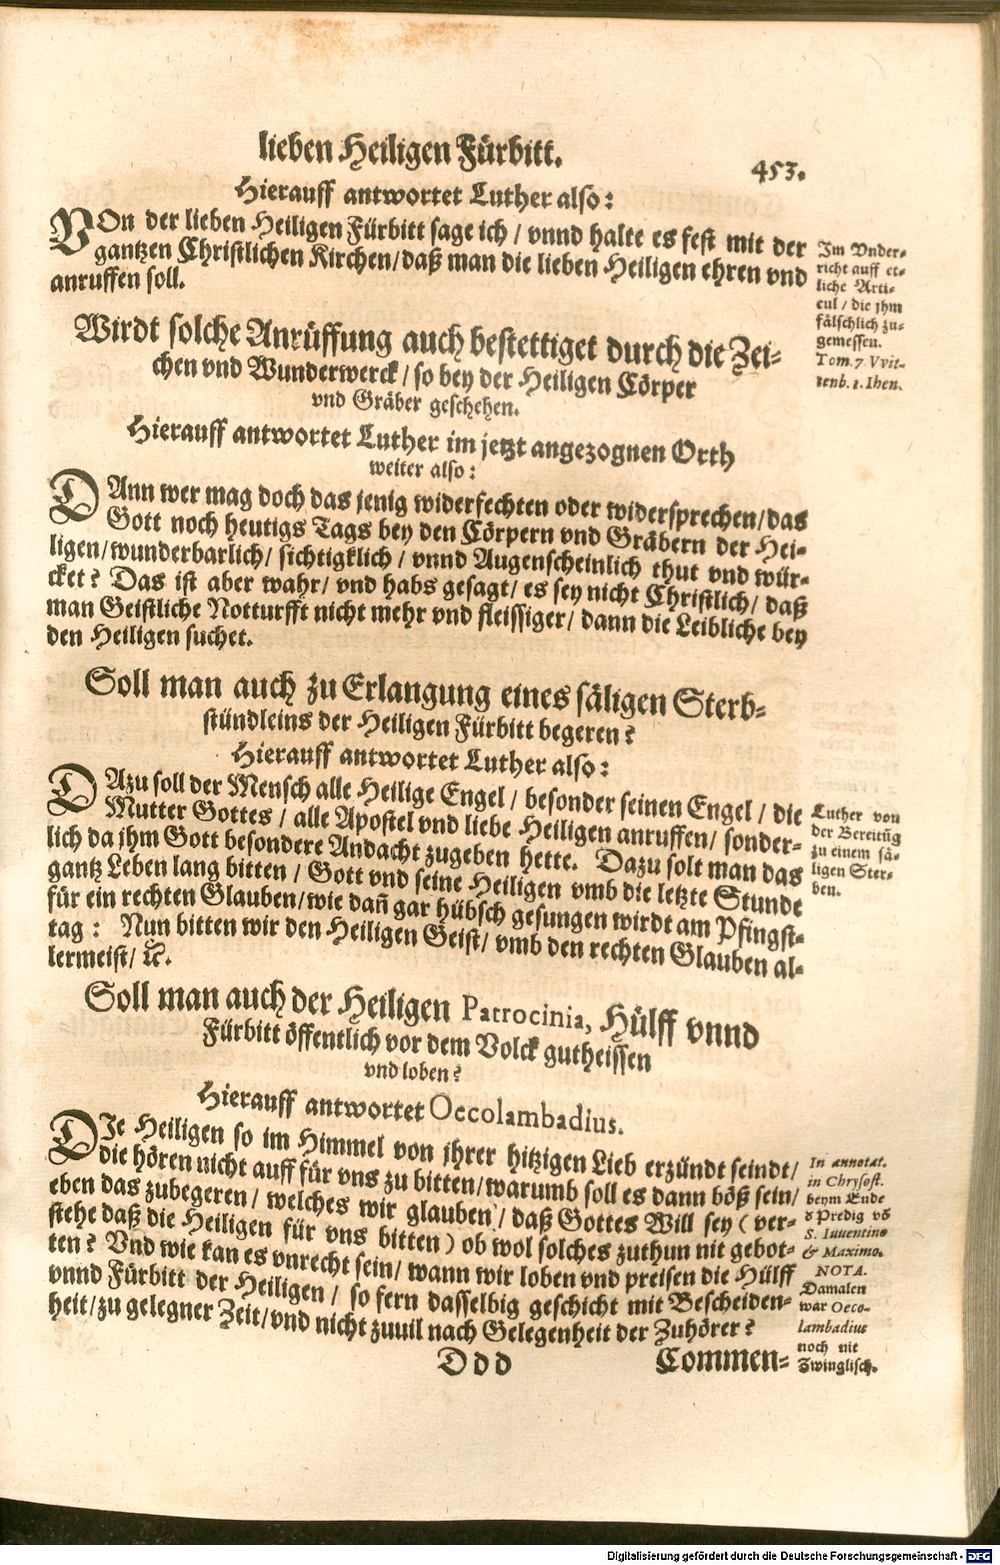 lieben Heiligen Fürbitt.
453.
Hierauff antwortet Luther also:
VOn der lieben Heiligen Fürbitt sage ich / vnnd halte es fest mit der
gantzen Christlichen Kirchen/daß man die lieben Heiligen ehren vnd
anruffen soll.
Im Vnder-
richt auff et-
liche Arti-
cul / die jhm
fälschlich zu-
gemessen.
Tom. 7 Vvit-
tenb. 1. Ihen.
Wirdt solche Anrüffung auch bestettiget durch die Zei-
chen vnd Wunderwerck / so bey der Heiligen Cörper
vnd Gräber geschehen.
Hierauff antwortet Luther im jetzt angezognen Orth
weiter also:
DAnn wer mag doch das jenig widerfechten oder widersprechen/das
Gott noch heutigs Tags bey den Cörpern vnd Gräbern der Hei-
ligen/wunderbarlich/ sichtigklich / vnnd Augenscheinlich thut vnd wür-
cket? Das ist aber wahr/ vnd habs gesagt/ es sey nicht Christlich/ daß
man Geistliche Notturfft nicht mehr vnd fleissiger/ dann die Leibliche bey
den Heiligen suchet.
Soll man auch zu Erlangung eines säligen Sterb-
stündleins der Heiligen Fürbitt begeren?
Hierauff antwortet Luther also:
DAzu soll der Mensch alle Heilige Engel / besonder seinen Engel / die
Mutter Gottes / alle Apostel vnd liebe Heiligen anruffen/ sonder-
lich da jhm Gott besondere Andacht zugeben hette. Dazu solt man das
gantz Leben lang bitten / Gott vnd seine Heiligen vmb die letzte Stunde
für ein rechten Glauben/wie dañ gar hübsch gesungen wirdt am Pfingst-
tag: Nun bitten wir den Heiligen Geist/ vmb den rechten Glauben al-
lermeist/ ꝛc.
Luther von
der Bereitũg
zu einem sä-
ligen Ster-
ben.
Soll man auch der Heiligen Patrocinia, Hülff vnnd
Fürbitt öffentlich vor dem Volck gutheissen
vnd loben?
Hierauff antwortet Oecolambadius.
DJe Heiligen so im Himmel von jhrer hitzigen Lieb erzündt seindt/
die hören nicht auff für vns zu bitten/warumb soll es dann böß sein/
eben das zubegeren / welches wir glauben / daß Gottes Will sey ( ver-
stehe daß die Heiligen für vns bitten ) ob wol solches zuthun nit gebot-
ten? Vnd wie kan es vnrecht sein/ wann wir loben vnd preisen die Hülff
vnnd Fürbitt der Heiligen / so fern dasselbig geschicht mit Bescheiden-
heit/zu gelegner Zeit/vnd nicht zuuil nach Gelegenheit der Zuhörer?
In annotat.
in Chrysost.
beym Ende
d Predig võ
S. Iuuentino
& Maximo.
NOTA.
Damalen
war Oeco-
lambadius
noch nit
Zwinglisch.
Ddd
Commen-
Digitalisierung gefördert durch die Deutsche Forschungsgemeinschaft - DFG